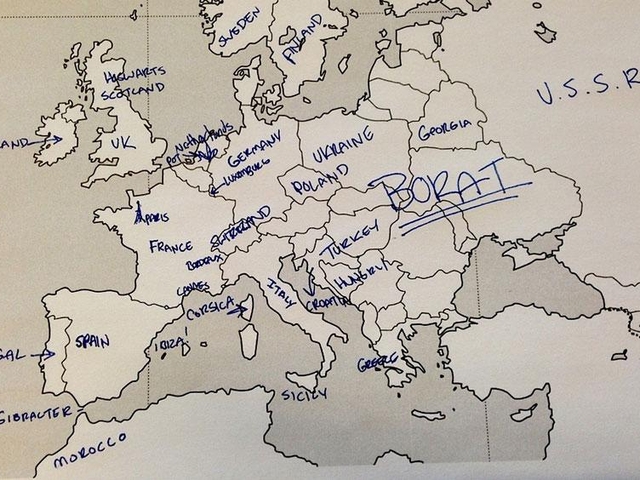 SWEDEN
FINLAND
HOGWARTS
SCOTLAND
U.S.S.R
LAND
UK
NETHERLANDS
GERMANY
LUXEMBURG
UKRAINE
GEORGIA
POLAND
BORAT
PARIS
FRANCE
BORDEAUX
CANNES
TURKEY
HUNGRY
ITALY
CROATIA
CORSICA
GAL
SPAIN
IBIZA!
GREECE
SICILY
GIBRALTER
MOROCCO